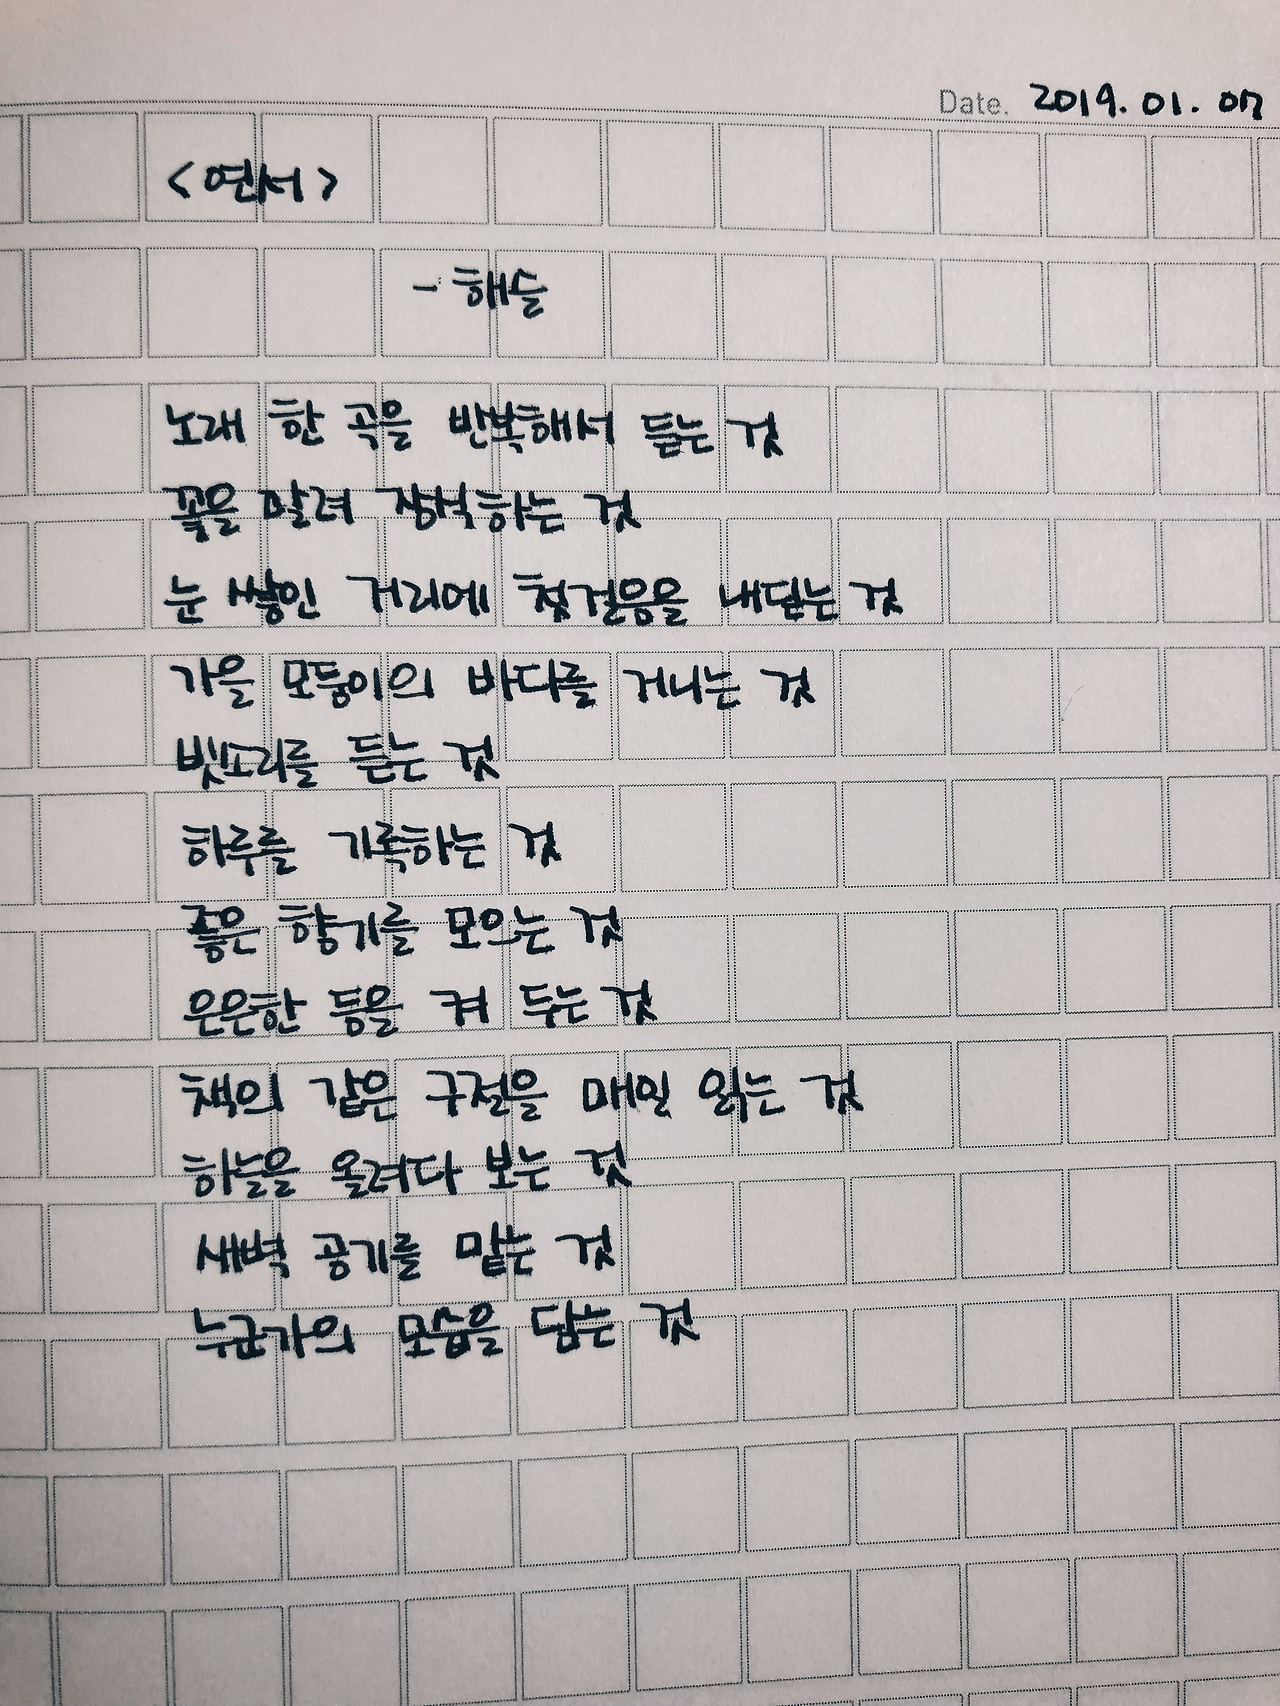 Date. 2019. 01. 07
<연서>
- 해슬
노래 한 곡을 반복해서 듣는 것
꽃을 말려 장식하는 것
눈 쌓인 거리에 첫걸음을 내딛는 것
가을 모퉁이의 바다를 거니는 것
빗소리를 듣는 것
하루를 기록하는 것
좋은 향기를 모으는 것
은은한 등을 켜 두는 것
책의 같은 구절을 매일 읽는 것
하늘을 올려다 보는 것
새벽 공기를 맡는 것
누군가의 모습을 담는 것